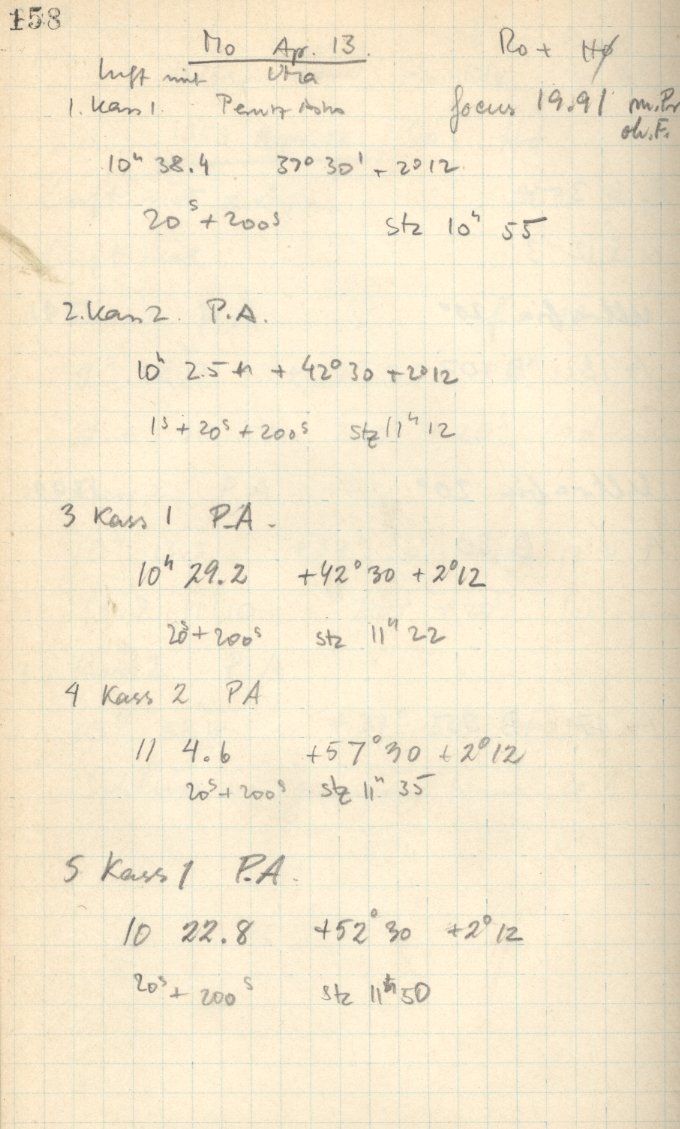 158
Mo Apr. 13. Ro +
Luft mit
1. Kass 1. Perutz Astro focus 19.91 m. Pr
oh. F.
10ʰ 38.4 37° 30' + 2°12
20ˢ + 200ˢ Stz 10ʰ 55
2. Kass 2. P.A.
10ʰ 2.5 + 42°30 + 2°12
1ˢ + 20ˢ + 200ˢ Stz 11ʰ 12
3 Kass 1 P.A.
10ʰ 29.2 +42°30 + 2°12
20ˢ + 200ˢ Stz 11ʰ 22
4 Kass 2 PA
11 4.6 +57°30 + 2°12
20ˢ + 200ˢ Stz 11ʰ 35
5 Kass 1 P.A.
10 22.8 +52°30 +2°12
20ˢ + 200ˢ Stz 11ʰ 50